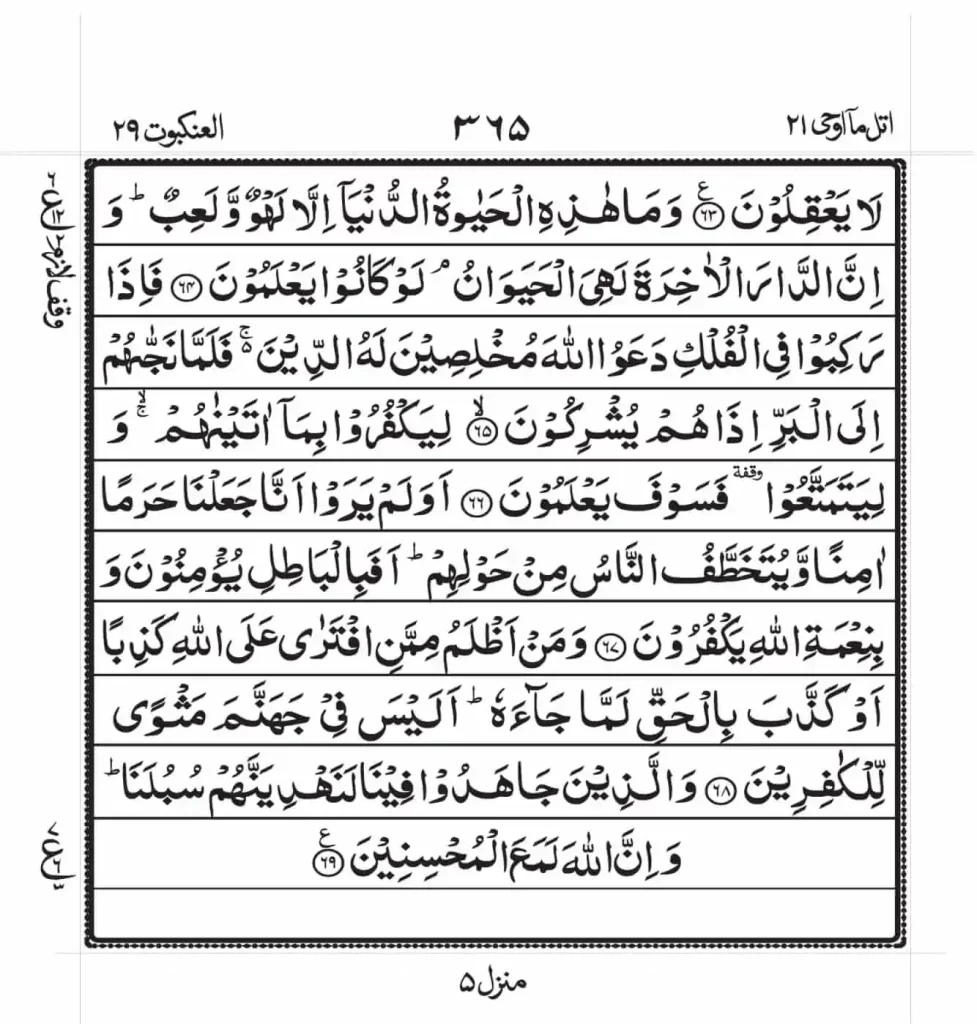 اتل مآ اوحی ۲۱
۳۶۵
العنکبوت ۲۹
لَا يَعْقِلُوْنَ ﴿۶۳﴾ ع وَمَا هٰذِهِ الْحَيٰوةُ الدُّنْيَآ اِلَّا لَهْوٌ وَّلَعِبٌ ؕ وَ
اِنَّ الدَّارَ الْاٰخِرَةَ لَهِيَ الْحَيَوَانُ ۘ لَوْ كَانُوْا يَعْلَمُوْنَ ﴿۶۴﴾ فَاِذَا
رَكِبُوْا فِي الْفُلْكِ دَعَوُا اللّٰهَ مُخْلِصِيْنَ لَهُ الدِّيْنَ ۵ۚ فَلَمَّا نَجّٰىهُمْ
اِلَى الْبَرِّ اِذَا هُمْ يُشْرِكُوْنَ ﴿۶۵﴾ۙ لِيَكْفُرُوْا بِمَآ اٰتَيْنٰهُمْ ۚۙ وَ
لِيَتَمَتَّعُوْا وقفة فَسَوْفَ يَعْلَمُوْنَ ﴿۶۶﴾ اَوَلَمْ يَرَوْا اَنَّا جَعَلْنَا حَرَمًا
اٰمِنًا وَّيُتَخَطَّفُ النَّاسُ مِنْ حَوْلِهِمْ ؕ اَفَبِالْبَاطِلِ يُؤْمِنُوْنَ وَ
بِنِعْمَةِ اللّٰهِ يَكْفُرُوْنَ ﴿۶۷﴾ وَمَنْ اَظْلَمُ مِمَّنِ افْتَرٰى عَلَى اللّٰهِ كَذِبًا
اَوْ كَذَّبَ بِالْحَقِّ لَمَّا جَآءَهٗ ؕ اَلَيْسَ فِيْ جَهَنَّمَ مَثْوًى
لِّلْكٰفِرِيْنَ ﴿۶۸﴾ وَالَّذِيْنَ جَاهَدُوْا فِيْنَا لَنَهْدِيَنَّهُمْ سُبُلَنَا ؕ
وَاِنَّ اللّٰهَ لَمَعَ الْمُحْسِنِيْنَ ﴿۶۹﴾ ع
منزل ۵